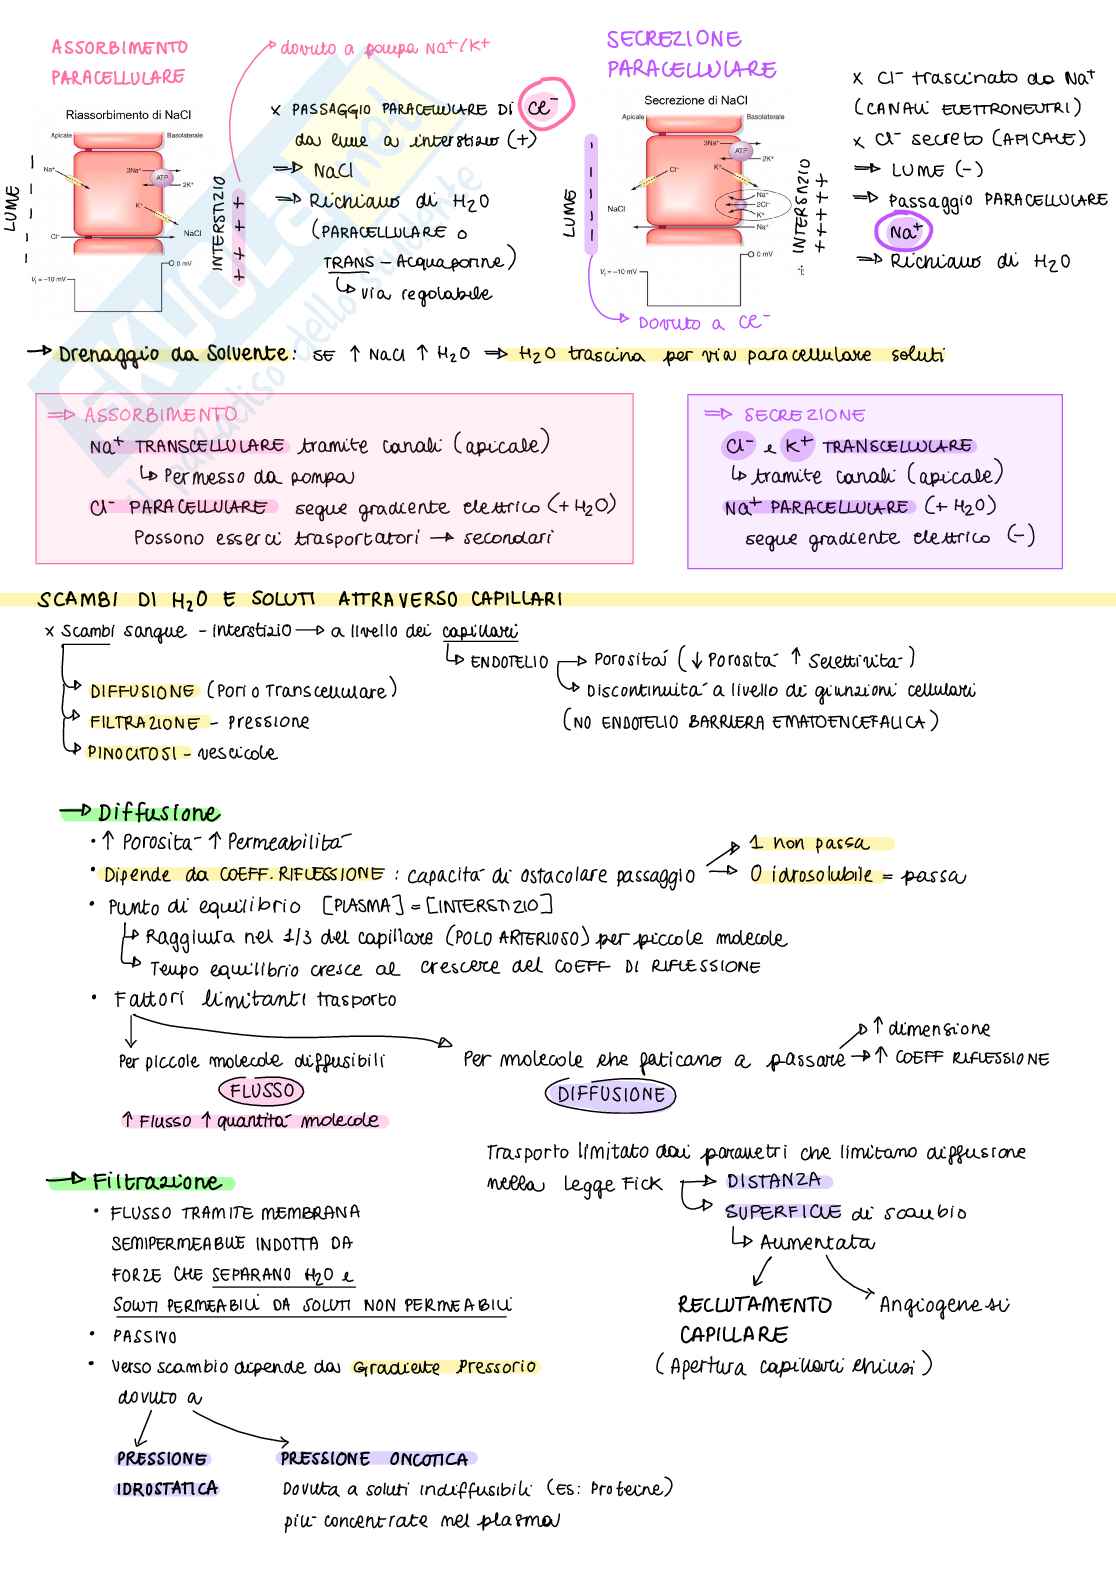 ASSORBIMENTO
PARACELLULARE
dovuto a pompa Na⁺/K⁺
Riassorbimento di NaCl
Apicale
Basolaterale
Na⁺
3Na⁺
ATP
2K⁺
K⁺
NaCl
Cl⁻
0 mV
Vₜ = –10 mV
LUME
INTERSTIZIO
+ + + +
x PASSAGGIO PARACELLULARE DI Cl⁻
da lume a interstizio (+)
⇒ NaCl
⇒ Richiamo di H₂O
(PARACELLULARE o
TRANS - Acquaporine)
↳ via regolabile
SECREZIONE
PARACELLULARE
Secrezione di NaCl
Apicale
Basolaterale
3Na⁺
ATP
2K⁺
Cl⁻
K⁺
Na⁺
2Cl⁻
K⁺
NaCl
Na⁺
0 mV
Vₜ = –10 mV
LUME
INTERSTIZIO
+ + + + +
DOVUTO A Cl⁻
x Cl⁻ trascinato da Na⁺
(CANALI ELETTRONEUTRI)
x Cl⁻ secreto (APICALE)
⇒ LUME (-)
⇒ Passaggio PARACELLULARE
Na⁺
⇒ Richiamo di H₂O
→ Drenaggio da Solvente: SE ↑ NaCl ↑ H₂O ⇒ H₂O trascina per via paracellulare soluti
⇒ ASSORBIMENTO
Na⁺ TRANSCELLULARE tramite canali (apicale)
↳ Permesso da pompa
Cl⁻ PARACELLULARE segue gradiente elettrico (+ H₂O)
Possono esserci trasportatori → secondari
⇒ SECREZIONE
Cl⁻ e K⁺ TRANSCELLULARE
↳ tramite canali (apicale)
Na⁺ PARACELLULARE (+ H₂O)
segue gradiente elettrico (-)
SCAMBI DI H₂O E SOLUTI ATTRAVERSO CAPILLARI
x Scambi sangue - interstizio → a livello dei capillari
↳ ENDOTELIO → Porosità (↓ Porosità ↑ Selettività)
↳ DISCONTINUITÀ a livello di giunzioni cellulari
(NO ENDOTELIO BARRIERA EMATOENCEFALICA)
↳ DIFFUSIONE (Pori o Transcellulare)
↳ FILTRAZIONE - PRESSIONE
↳ PINOCITOSI - vescicole
→ Diffusione
• ↑ Porosità ↑ Permeabilità
• Dipende da COEFF. RIFLESSIONE : capacità di ostacolare passaggio
→ 1 non passa
→ 0 idrosolubile = passa
• Punto di equilibrio [PLASMA] = [INTERSTIZIO]
↳ Raggiunta nel 1/3 del capillare (POLO ARTERIOSO) per piccole molecole
↳ Tempo equilibrio cresce al crescere del COEFF DI RIFLESSIONE
• Fattori limitanti trasporto
Per piccole molecole diffusibili
FLUSSO
↑ Flusso ↑ quantità molecole
Per molecole che faticano a passare
→ ↑ dimensione
→ ↑ COEFF RIFLESSIONE
DIFFUSIONE
Trasporto limitato dai parametri che limitano diffusione
nella legge Fick → DISTANZA
↳ SUPERFICIE di scambio
↳ Aumentata
RECLUTAMENTO
CAPILLARE
(Apertura capillari chiusi)
Angiogenesi
→ Filtrazione
• FLUSSO TRAMITE MEMBRANA
SEMIPERMEABILE INDOTTA DA
FORZE CHE SEPARANO H₂O e
SOLUTI PERMEABILI DA SOLUTI NON PERMEABILI
• PASSIVO
• Verso scambio dipende da Gradiente Pressorio
dovuto a
PRESSIONE
IDROSTATICA
PRESSIONE ONCOTICA
Dovuta a soluti indiffusibili (ES: Proteine)
più concentrate nel plasma
SKUOLA.net
il paradiso dello studente